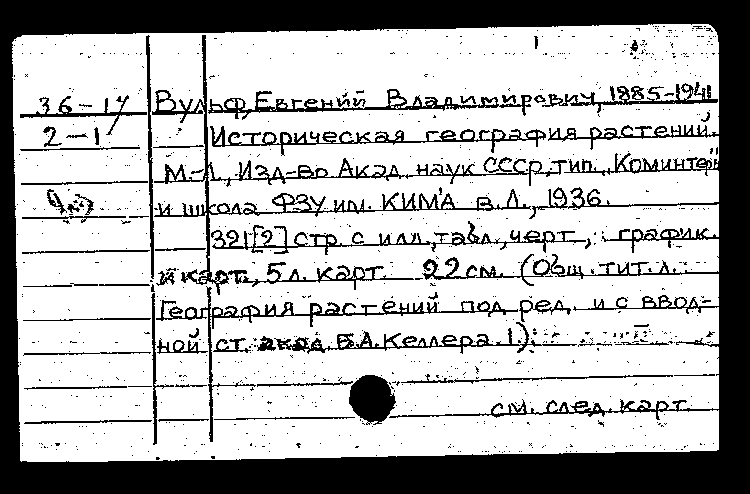 36-17 Вульф, Евгений Владимирович, 1885-1941
2-1 Историческая география растений.
М.-Л., Изд-во Акад. наук СССР, тип. „Коминтерн"
и школа ФЗУ им. КИМ'А в Л., 1936.
321[2] стр. с илл., табл., черт., график.
и карт., 5 л. карт. 22 см. (Общ. тит. л.:
География растений под ред. и с ввод-
ной ст. акад. Б.А. Келлера. 1).
см. след. карт.